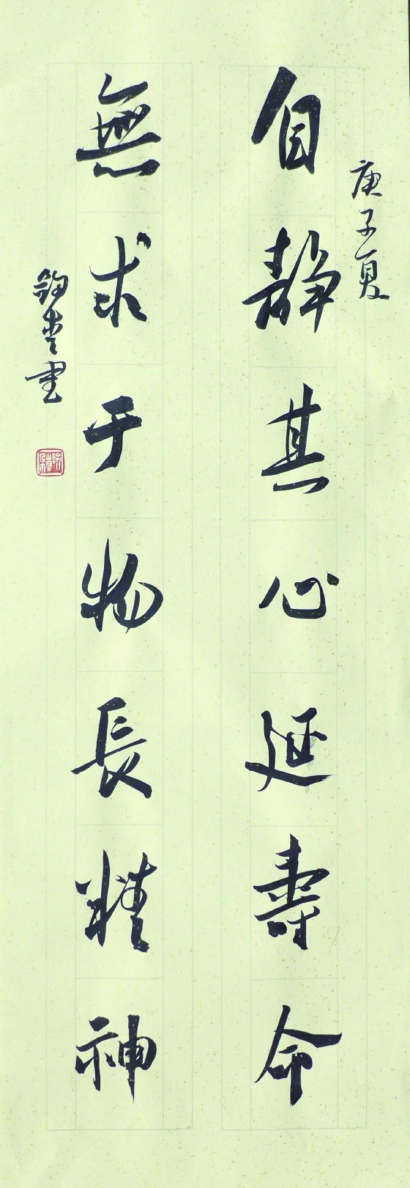 庚子夏
自静其心延壽命
無求于物長精神
书